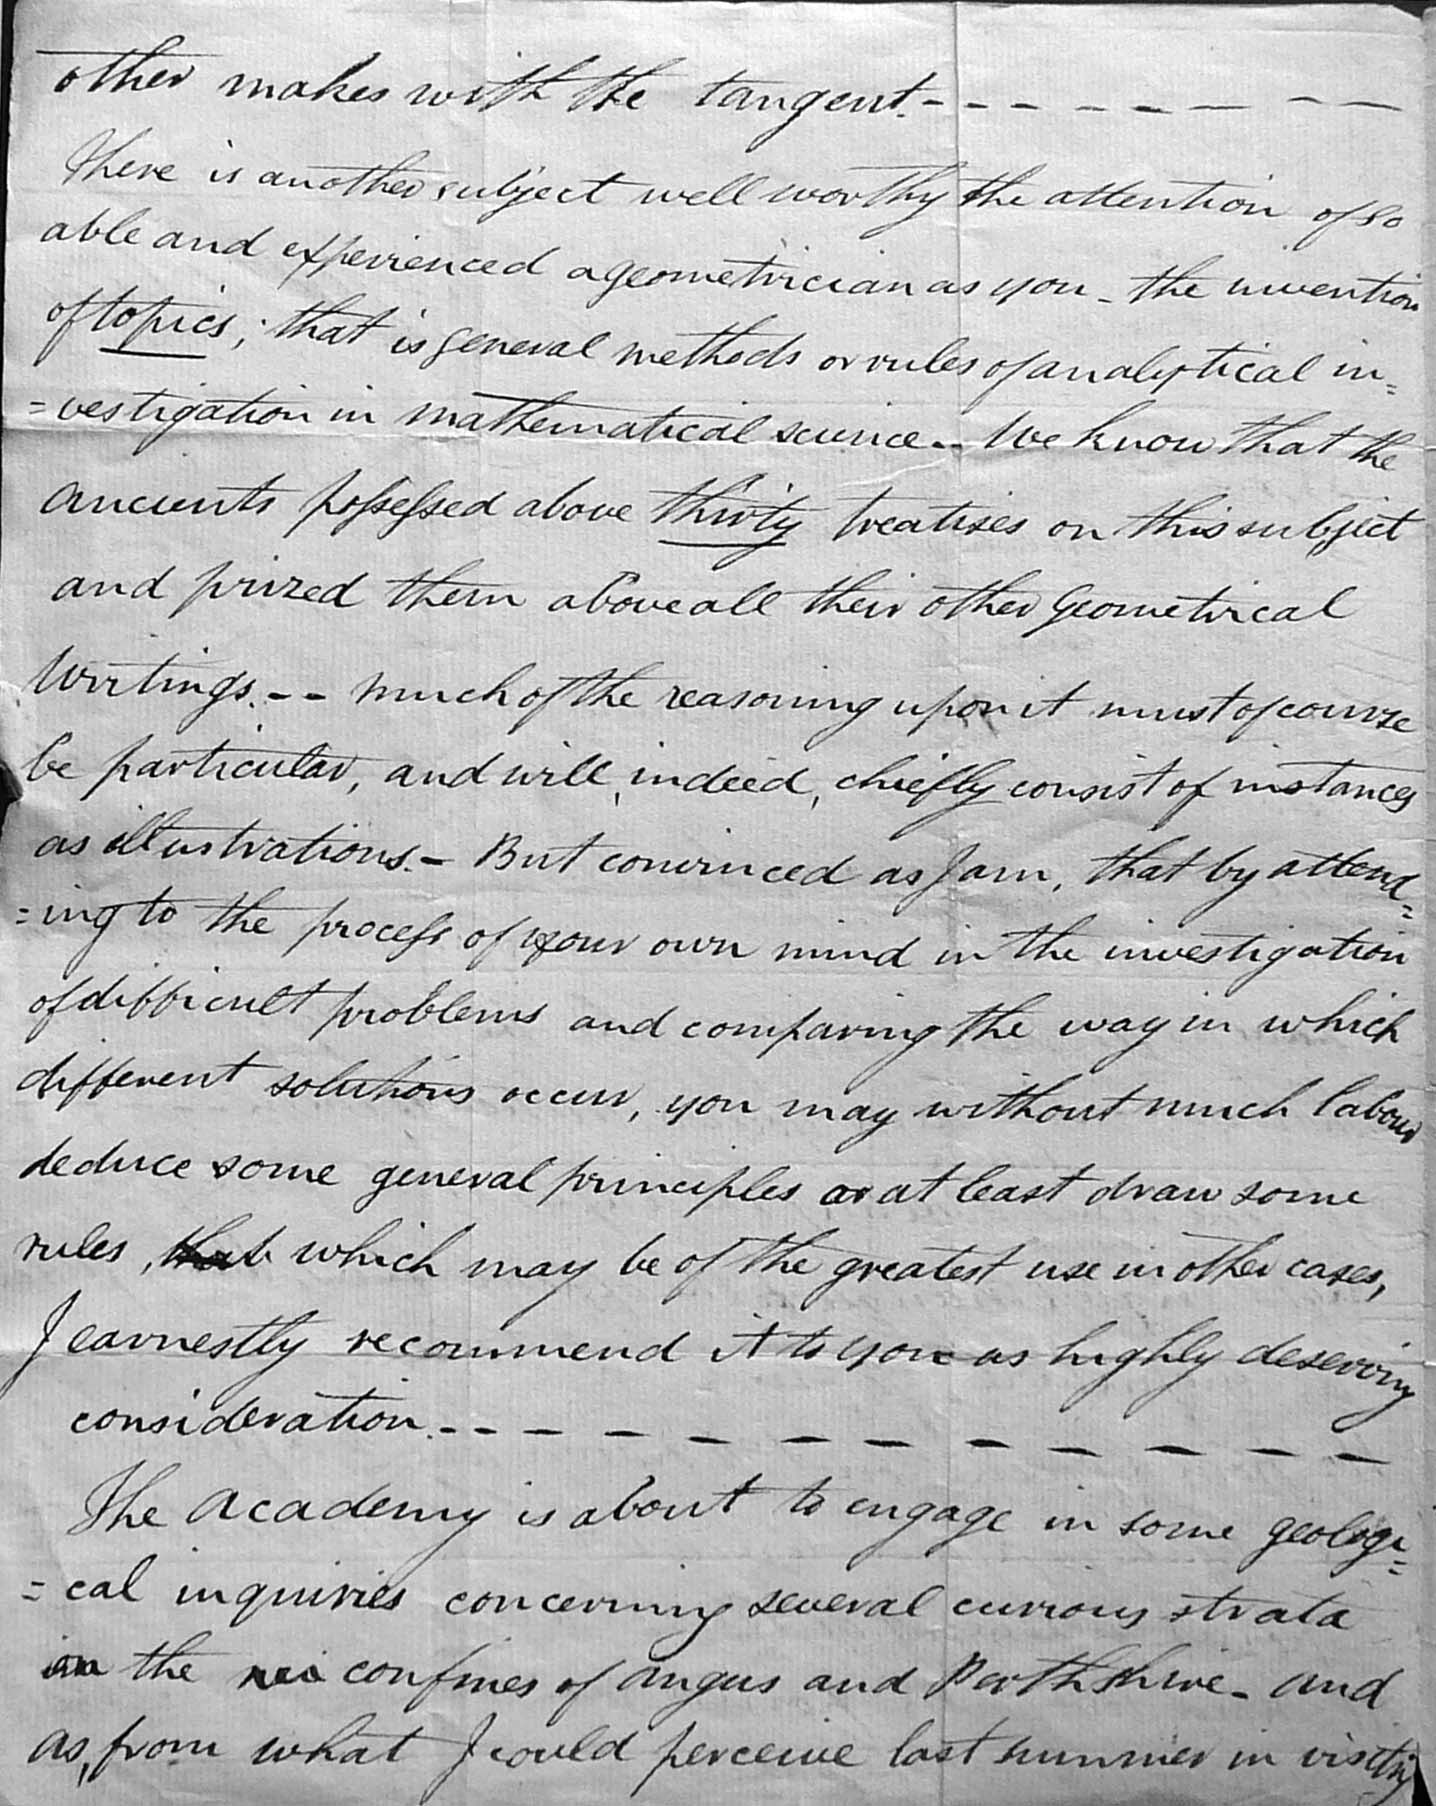 other makes with the tangent. - - - - - - - - -
There is another subject well worthy the attention of so
able and experienced a geometrician as you - the invention
of topics; that is general methods or rules of analytical in=
=vestigation in mathematical science. - We know that the
ancients possessed above thirty treatises on this subject
and prized them above all their other Geometrical
Writings. - - much of the reasoning upon it must of course
be particular, and will, indeed, chiefly consist of instances
as illustrations. - But convinced as I am, that by attend=
=ing to the process of your own mind in the investigation
of difficult problems and comparing the way in which
different solutions occur, you may without much labour
deduce some general principles or at least draw some
rules, that which may be of the greatest use in other cases,
I earnestly recommend it to you as highly deserving
consideration. - - - - - - - - - - - - -
The Academy is about to engage in some geologi=
=cal inquiries concerning several curious strata
on the confines of angus and Perthshire - and
as, from what I could perceive last summer in visiting